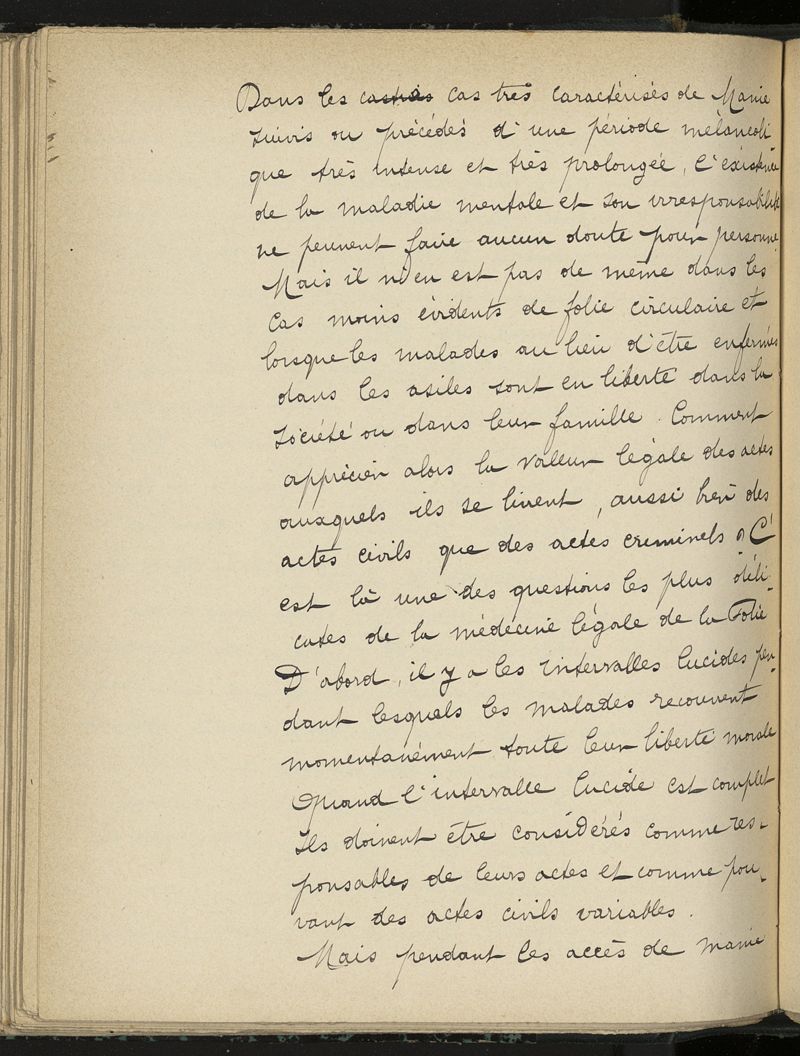 Dans les cas très caractérisés de Manie
suivis ou précédés d'une période mélancoli
que très intense et très prolongée, l'existence
de la maladie mentale et son irresponsabilité
ne peuvent faire aucun doute pour personne.
Mais il n'en est pas de même dans les
cas moins évidents de folie circulaire et
lorsque les malades au lieu d'être enfermés
dans les asiles sont en liberté dans la
société ou dans leur famille. Comment
apprécier alors la valeur légale des actes
auxquels ils se livrent, aussi bien des
actes civils que des actes criminels? C'
est là une des questions les plus déli-
cates de la médecine légale de la Folie
D'abord, il y a les intervalles lucides pen-
dant lesquels les malades recouvrent
momentanément toute leur liberté morale
Quand l'intervalle lucide est complet
Ils doivent être considérés comme res-
ponsables de leurs actes et comme pou-
vant des actes civils variables.
Mais pendant les accès de manie